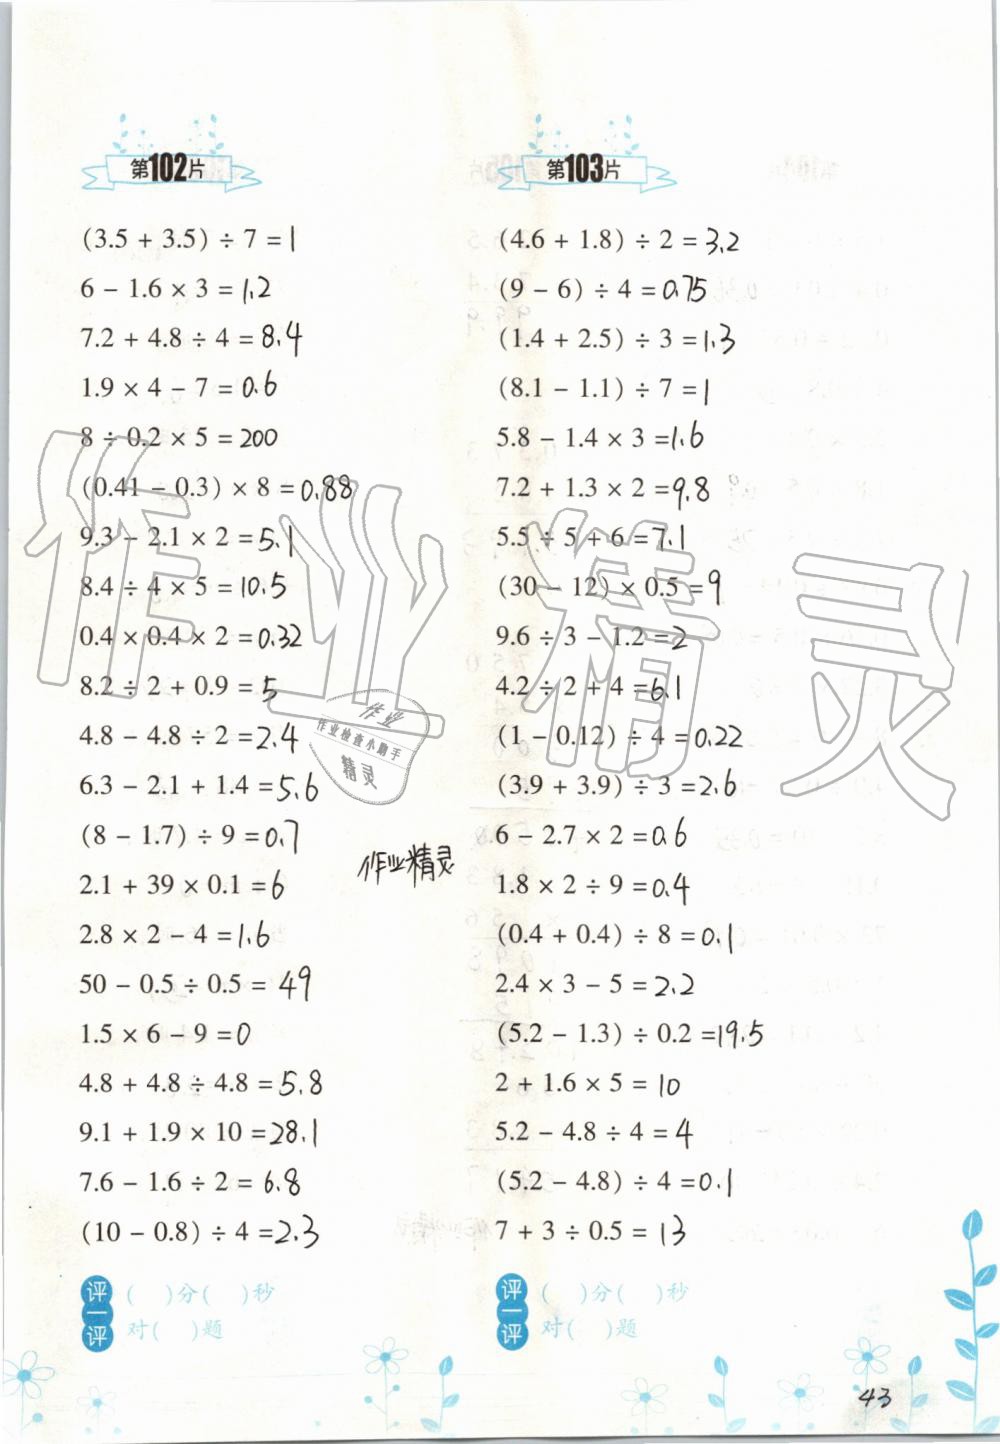 第102片
(3.5 + 3.5) ÷ 7 = 1
6 - 1.6 × 3 = 1.2
7.2 + 4.8 ÷ 4 = 8.4
1.9 × 4 - 7 = 0.6
8 ÷ 0.2 × 5 = 200
(0.41 - 0.3) × 8 = 0.88
9.3 - 2.1 × 2 = 5.1
8.4 ÷ 4 × 5 = 10.5
0.4 × 0.4 × 2 = 0.32
8.2 ÷ 2 + 0.9 = 5
4.8 - 4.8 ÷ 2 = 2.4
6.3 - 2.1 + 1.4 = 5.6
(8 - 1.7) ÷ 9 = 0.7
2.1 + 39 × 0.1 = 6
2.8 × 2 - 4 = 1.6
50 - 0.5 ÷ 0.5 = 49
1.5 × 6 - 9 = 0
4.8 + 4.8 ÷ 4.8 = 5.8
9.1 + 1.9 × 10 = 28.1
7.6 - 1.6 ÷ 2 = 6.8
(10 - 0.8) ÷ 4 = 2.3
评一评
( )分( )秒
对( )题
第103片
(4.6 + 1.8) ÷ 2 = 3.2
(9 - 6) ÷ 4 = 0.75
(1.4 + 2.5) ÷ 3 = 1.3
(8.1 - 1.1) ÷ 7 = 1
5.8 - 1.4 × 3 = 1.6
7.2 + 1.3 × 2 = 9.8
5.5 ÷ 5 + 6 = 7.1
(30 - 12) × 0.5 = 9
9.6 ÷ 3 - 1.2 = 2
4.2 ÷ 2 + 4 = 6.1
(1 - 0.12) ÷ 4 = 0.22
(3.9 + 3.9) ÷ 3 = 2.6
6 - 2.7 × 2 = 0.6
1.8 × 2 ÷ 9 = 0.4
(0.4 + 0.4) ÷ 8 = 0.1
2.4 × 3 - 5 = 2.2
(5.2 - 1.3) ÷ 0.2 = 19.5
2 + 1.6 × 5 = 10
5.2 - 4.8 ÷ 4 = 4
(5.2 - 4.8) ÷ 4 = 0.1
7 + 3 ÷ 0.5 = 13
评一评
( )分( )秒
对( )题
作业精灵
作业
作业检查小助手
精灵
作业精灵
43